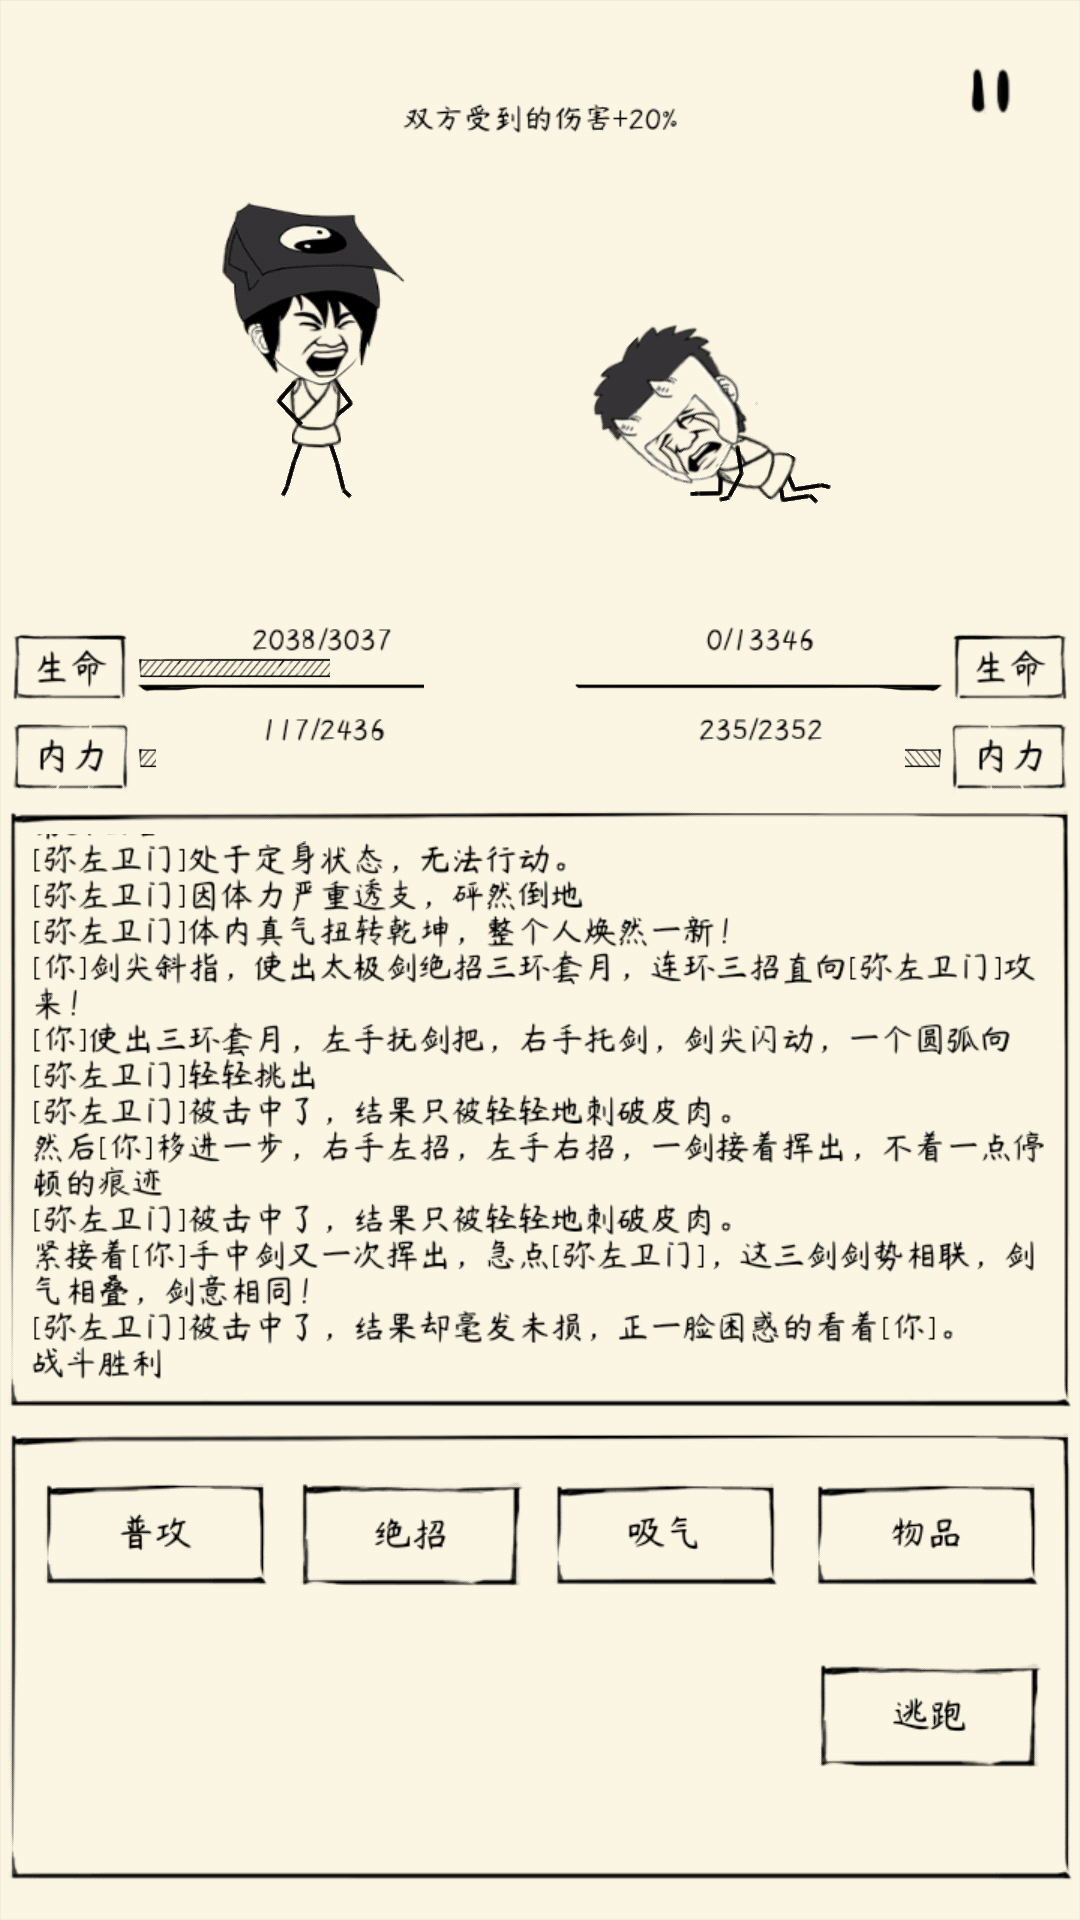 双方受到的伤害+20%
2038/3037
0/13346
生命
生命
117/2436
235/2352
内力
内力
[弥左卫门]处于定身状态，无法行动。
[弥左卫门]因体力严重透支，砰然倒地
[弥左卫门]体内真气扭转乾坤，整个人焕然一新！
[你]剑尖斜指，使出太极剑绝招三环套月，连环三招直向[弥左卫门]攻
来！
[你]使出三环套月，左手抚剑把，右手托剑，剑尖闪动，一个圆弧向
[弥左卫门]轻轻挑出
[弥左卫门]被击中了，结果只被轻轻地刺破皮肉。
然后[你]移进一步，右手左招，左手右招，一剑接着挥出，不着一点停
顿的痕迹
[弥左卫门]被击中了，结果只被轻轻地刺破皮肉。
紧接着[你]手中剑又一次挥出，急点[弥左卫门]，这三剑剑势相联，剑
气相叠，剑意相同！
[弥左卫门]被击中了，结果却毫发未损，正一脸困惑的看着[你]。
战斗胜利
普攻
绝招
吸气
物品
逃跑